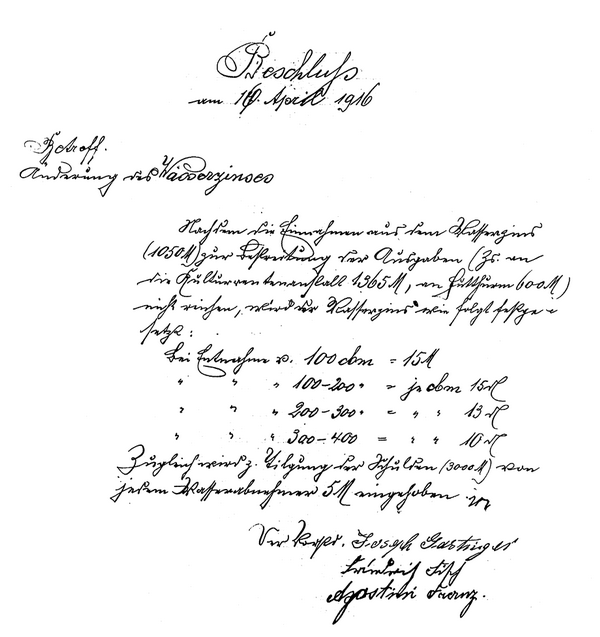 Beschluß
am 10. April 1916
Betreff.
Änderung des Wasserzinses
Nachdem die Einnahmen aus dem Wasserzins
(1050M) zur Bestreitung der Ausgaben (Zs. an
die Kulturrentenanstalt 1365M, an Hutthurm 600M)
nicht reichen, wird der Wasserzins wie folgt festge-
setzt:
Bei Entnahme v. 100 cbm = 15M
" " " 100-200 " = je cbm 15₰
" " " 200-300 " = " " 13₰
" " " 300-400 = " " 10₰
Zugleich wird z. Tilgung der Schulden (3000M) von
jedem Wasserabnehmer 5M eingehoben
Der Vorstd. Joseph Gastinger
Friedrich Fisch
Agostini Franz.